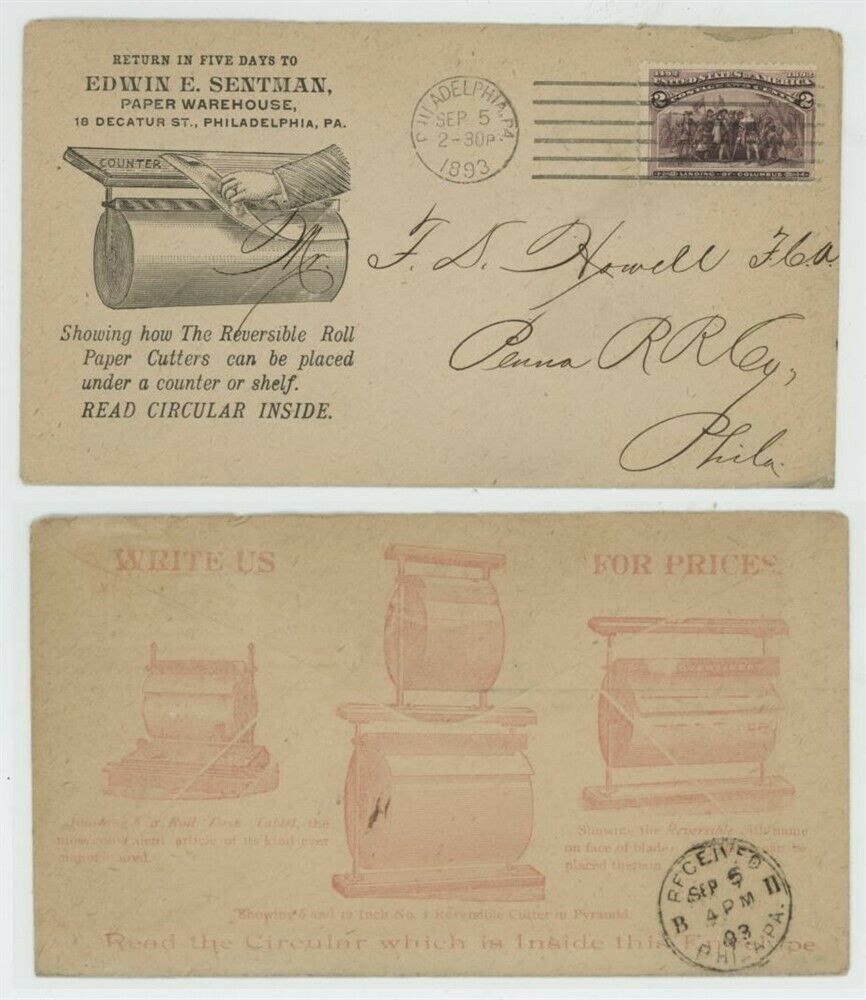 RETURN IN FIVE DAYS TO
EDWIN E. SENTMAN,
PAPER WAREHOUSE,
18 DECATUR ST., PHILADELPHIA, PA.
COUNTER
Showing how The Reversible Roll
Paper Cutters can be placed
under a counter or shelf.
READ CIRCULAR INSIDE.
PHILADELPHIA, PA.
SEP 5
2-30P
1893
1492 1892
UNITED STATES OF AMERICA
POSTAGE TWO CENTS
2 2
LANDING OF COLUMBUS
Mr. F. D. Howell
Penna R R Co,
Phila
WRITE US FOR PRICES.
Roll Desk Tablet, the
most convenient article of its kind ever
Showing the Reversible with name
on face of blade be
placed thereon
Showing 6 and 12 Inch No. 1 Reversible Cutter in Pyramid.
Read the Circular which is Inside this Envelope
RECEIVED
SEP 5
4 PM
93
B H
PHILA PA.